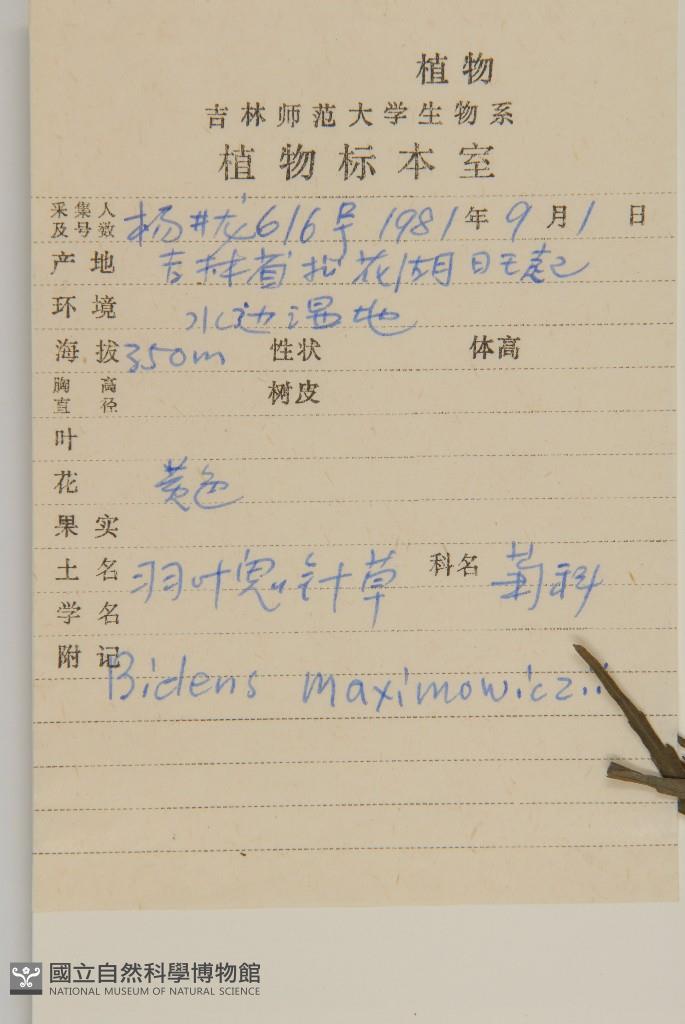 植物
吉林师范大学生物系
植物标本室
采集人及号数 杨 616号 1981年9月1日
产地 吉林省松花湖
环境 水边湿地
海拔 350m 性状 体高
胸高直径 树皮
叶
花 黄色
果实
土名 羽叶鬼针草 科名 菊科
学名
附记 Bidens maximowicziii
國立自然科學博物館
NATIONAL MUSEUM OF NATURAL SCIENCE